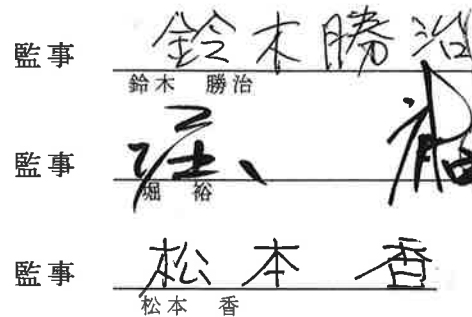 監事 鈴木勝治
鈴木 勝治
監事 堀 裕
堀 裕
監事 松本 香
松本 香